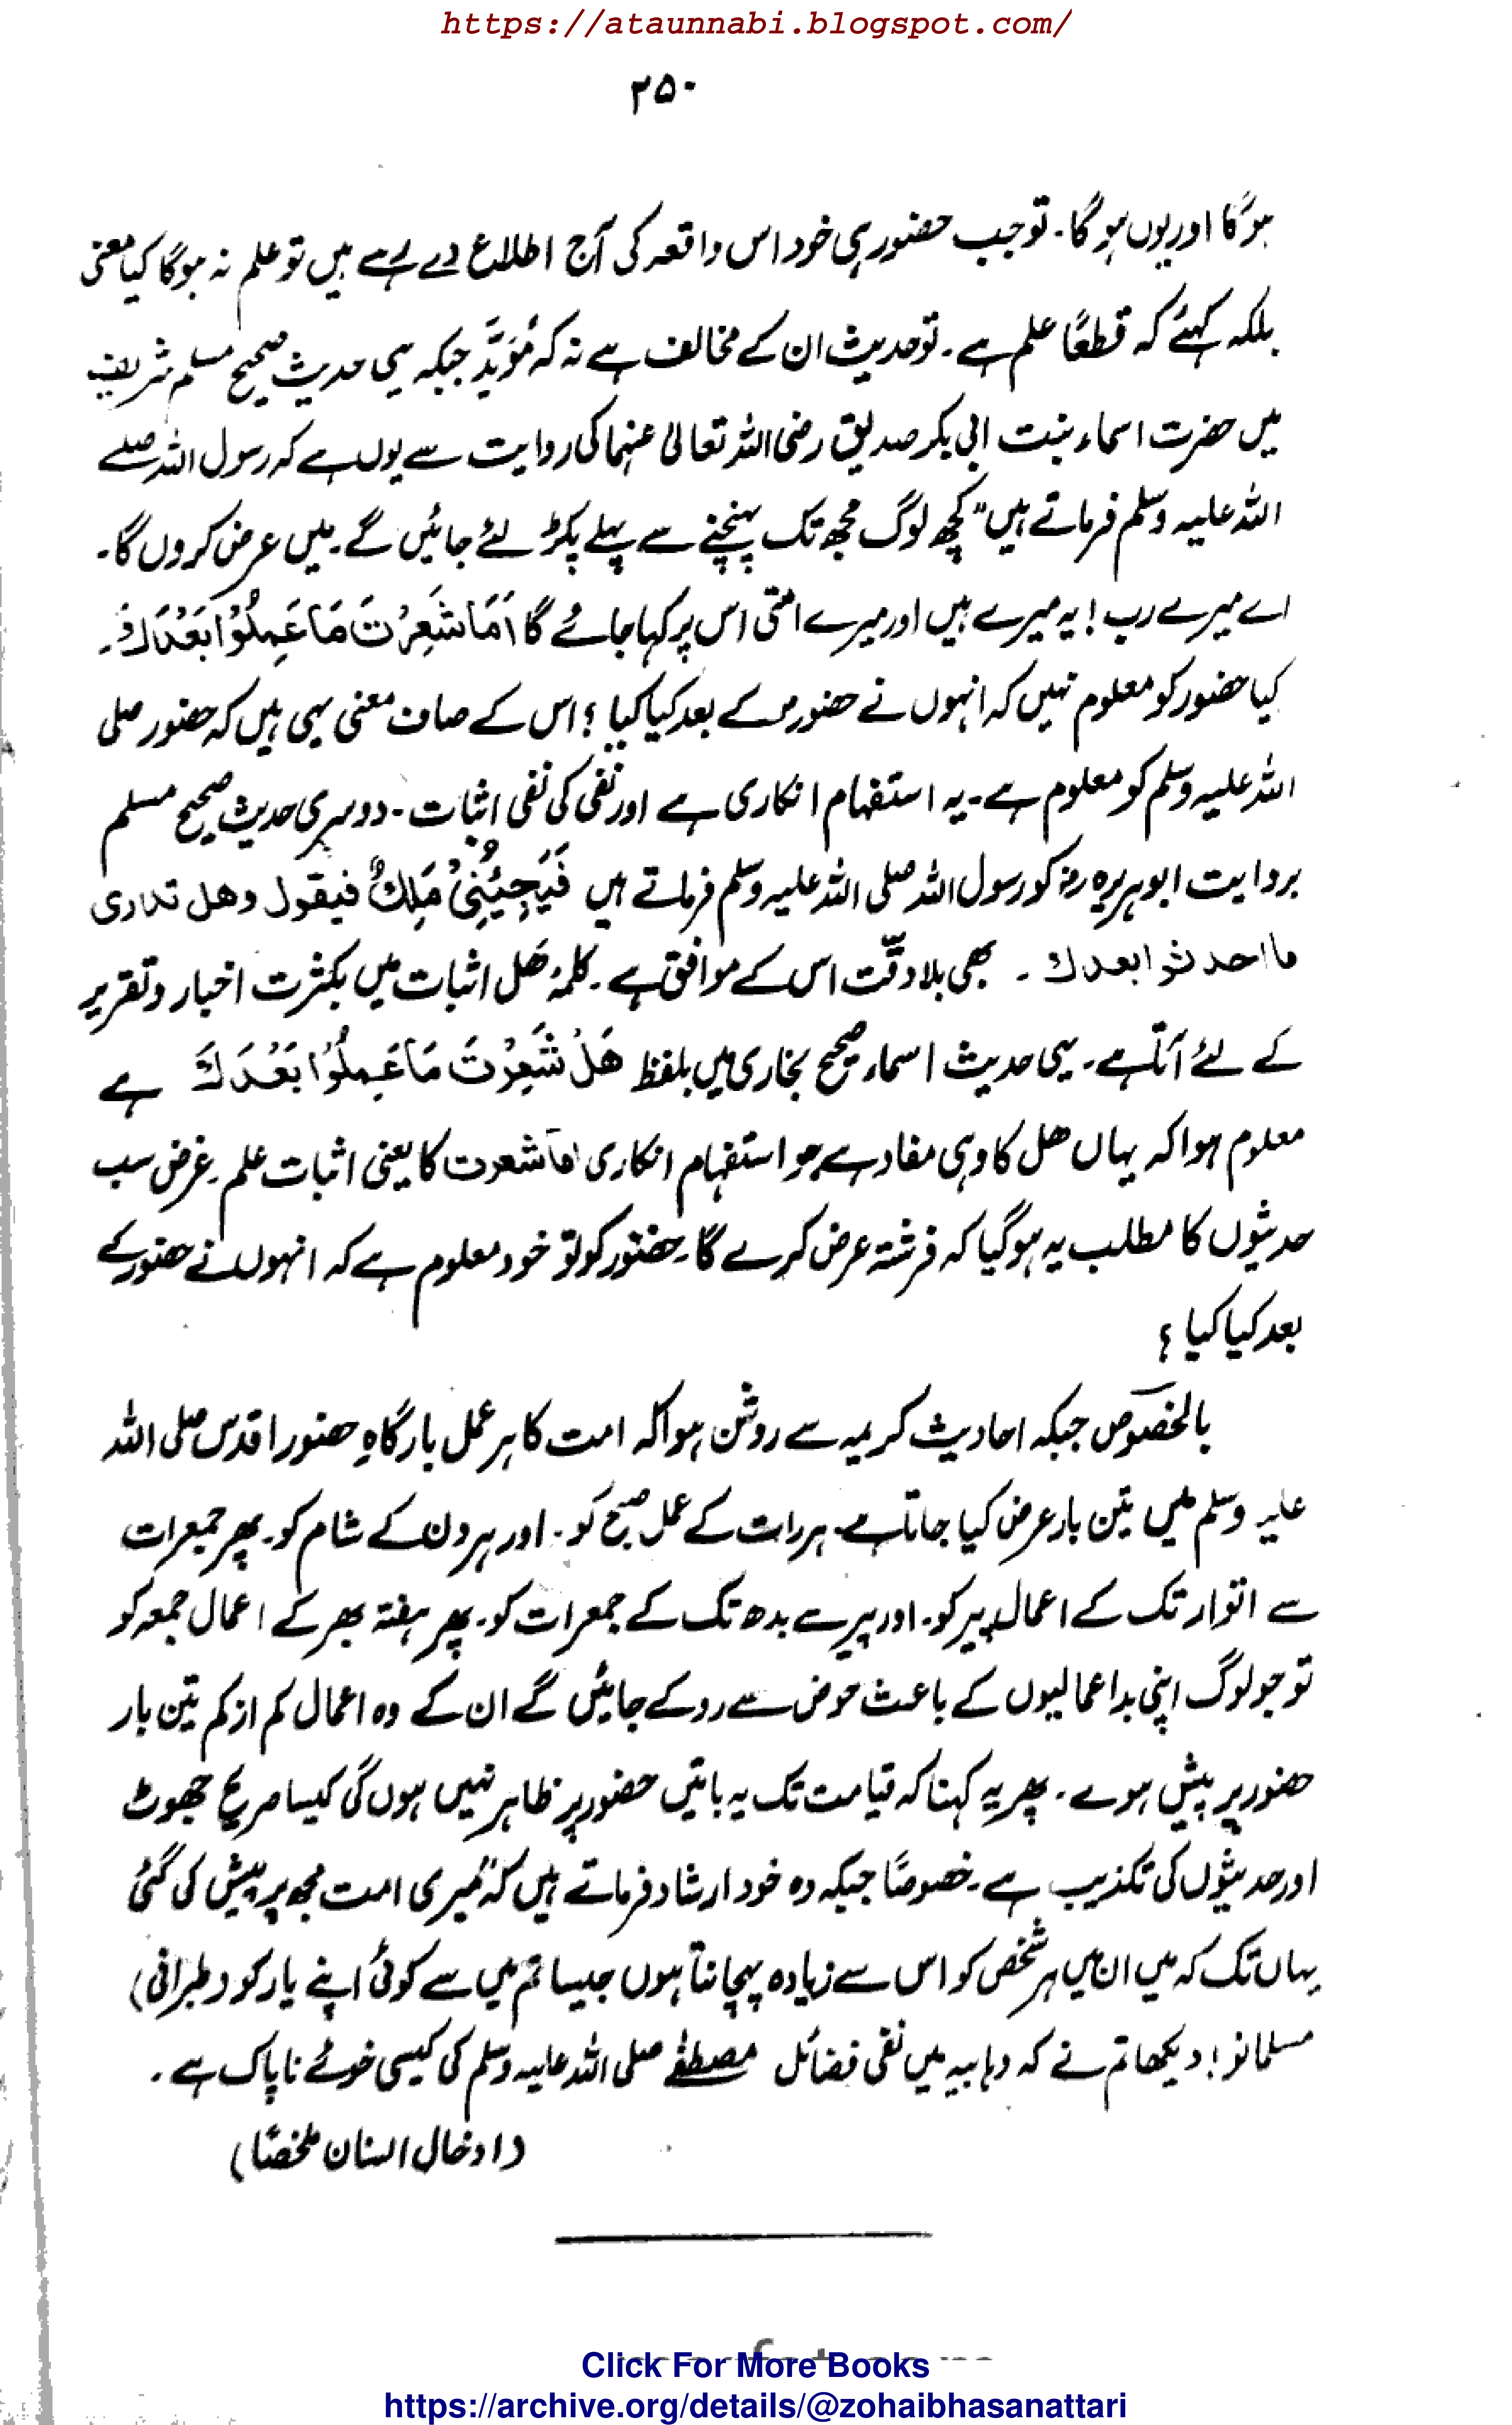 https://ataunnabi.blogspot.com/
۲۵۰
ہوگا اور یوں ہوگا۔ تو جب حضور ہی خود اس واقعہ کی آج اطلاع دے رہے ہیں تو علم نہ ہوگا کیا معنی
بلکہ کہئے کہ قطعًا علم ہے۔ تو حدیث ان کے مخالف ہے نہ کہ مُؤیَّد جبکہ یہی حدیث صحیح مسلم شریف
میں حضرت اسماء بنت ابی بکر صدیق رضی اللہ تعالیٰ عنہما کی روایت سے یوں ہے کہ رسول اللہ صلے
اللہ علیہ وسلم فرماتے ہیں "کچھ لوگ مجھ تک پہنچنے سے پہلے پکڑ لئے جائیں گے۔ میں عرض کروں گا۔
اے میرے رب! یہ میرے ہیں اور میرے امتی اس پر کہا جائے گا اَمَا شَعِرْتَ مَا عَمِلُوْا بَعْدَكَ۔
کیا حضور کو معلوم نہیں کہ انہوں نے حضور کے بعد کیا کیا؟ اس کے صاف معنی یہی ہیں کہ حضور صلی
اللہ علیہ وسلم کو معلوم ہے۔ یہ استفہام انکاری ہے اور نفی کی نفی اثبات۔ دوسری حدیث صحیح مسلم
بروایت ابوہریرہ رضؓ کو رسول اللہ صلی اللہ علیہ وسلم فرماتے ہیں فَیَجِیْئُنِیْ مَلِكٌ فیقول وهل تدری
ما احدثوا بعدك ۔ بھی بلا دقّت اس کے موافق ہے۔ کلمۂ ھَل اثبات میں بکثرت اخبار و تقریر
کے لئے آتا ہے۔ یہی حدیث اسماء صحیح بخاری میں بلفظ هَلْ شَعِرْتَ مَا عَمِلُوْا بَعْدَكَ ہے
معلوم ہوا کہ یہاں ھل کا وہی مفاد ہے جو استفہام انکاری اما شعرت کا یعنی اثبات علم۔ غرض سب
حدیثوں کا مطلب یہ ہوگیا کہ فرشتہ عرض کرے گا۔ حضور کو تو خود معلوم ہے کہ انہوں نے حضور کے
بعد کیا کیا؟
بالخصوص جبکہ احادیث کریمہ سے روشن ہوا کہ امت کا ہر عمل بارگاہِ حضور اقدس صلی اللہ
علیہ وسلم میں تین بار عرض کیا جاتا ہے۔ ہر رات کے عمل صبح کو۔ اور ہر دن کے شام کو۔ پھر جمعرات
سے اتوار تک کے اعمال پیر کو۔ اور پیر سے بدھ تک کے جمعرات کو۔ پھر ہفتہ بھر کے اعمال جمعہ کو
تو جو لوگ اپنی بداعمالیوں کے باعث حوض سے روکے جائیں گے ان کے وہ اعمال کم از کم تین بار
حضور پر پیش ہوے۔ پھر یہ کہنا کہ قیامت تک یہ باتیں حضور پر ظاہر نہیں ہوں گی کیسا صریح جھوٹ
اور حدیثوں کی تکذیب ہے۔ خصوصًا جبکہ وہ خود ارشاد فرماتے ہیں کہ "میری امت مجھ پر پیش کی گئی
یہاں تک کہ میں ان میں ہر شخص کو اس سے زیادہ پہچانتا ہوں جیسا تم میں سے کوئی اپنے یار کو (طبرانی)
مسلمانو! دیکھا تم نے کہ وہابیہ میں نفی فضائل مصطفٰے صلی اللہ علیہ وسلم کی کیسی خوئے ناپاک ہے۔
(ادخال السنان ملخصًا)
Click For More Books
https://archive.org/details/@zohaibhasanattari